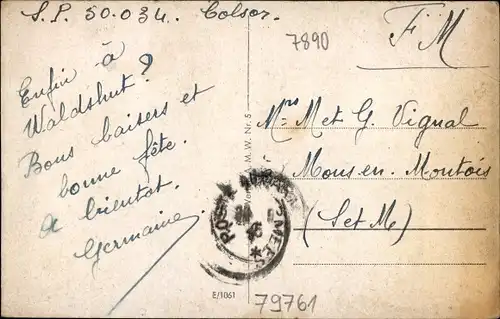 S.P. 50.034. Colsor.
7890
F M
Enfin à
Waldshut?
Bons baisers et
bonne fête.
A bientot.
Germaine.
Mrs Met G. Vignal
Mons en Montois
(Set M)
M.W. Nr. 5
POSTE AUX ARMÉES *
E/1061
79761